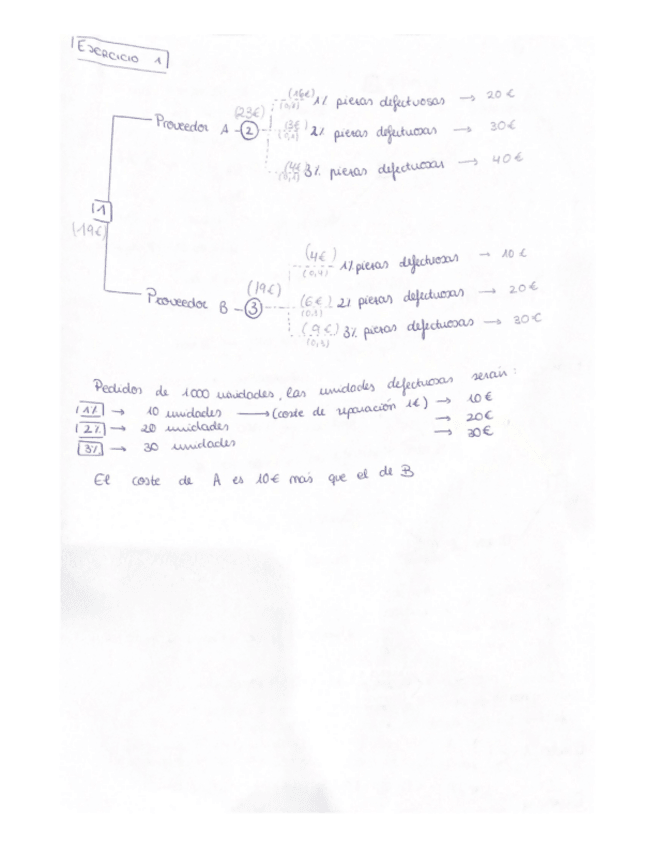 EJERCICIO 1
(16€)
(0,8) 1% piezas defectuosas → 20€
(23€)
Proveedor A - 2 (3€) 2% piezas defectuosas → 30€
(0,1)
(4€) 3% piezas defectuosas → 40€
(0,1)
1
(19€)
(4€) 1% piezas defectuosas → 10€
(0,4)
(19€)
Proveedor B - 3 (6€) 2% piezas defectuosas → 20€
(0,3)
(9€) 3% piezas defectuosas → 30€
(0,3)
Pedidos de 1000 unidades, las unidades defectuosas serain:
1% → 10 unidades → (coste de reparación 1€) → 10€
2% → 20 unidades → 20€
3% → 30 unidades → 30€
El coste de A es 10€ mas que el de B